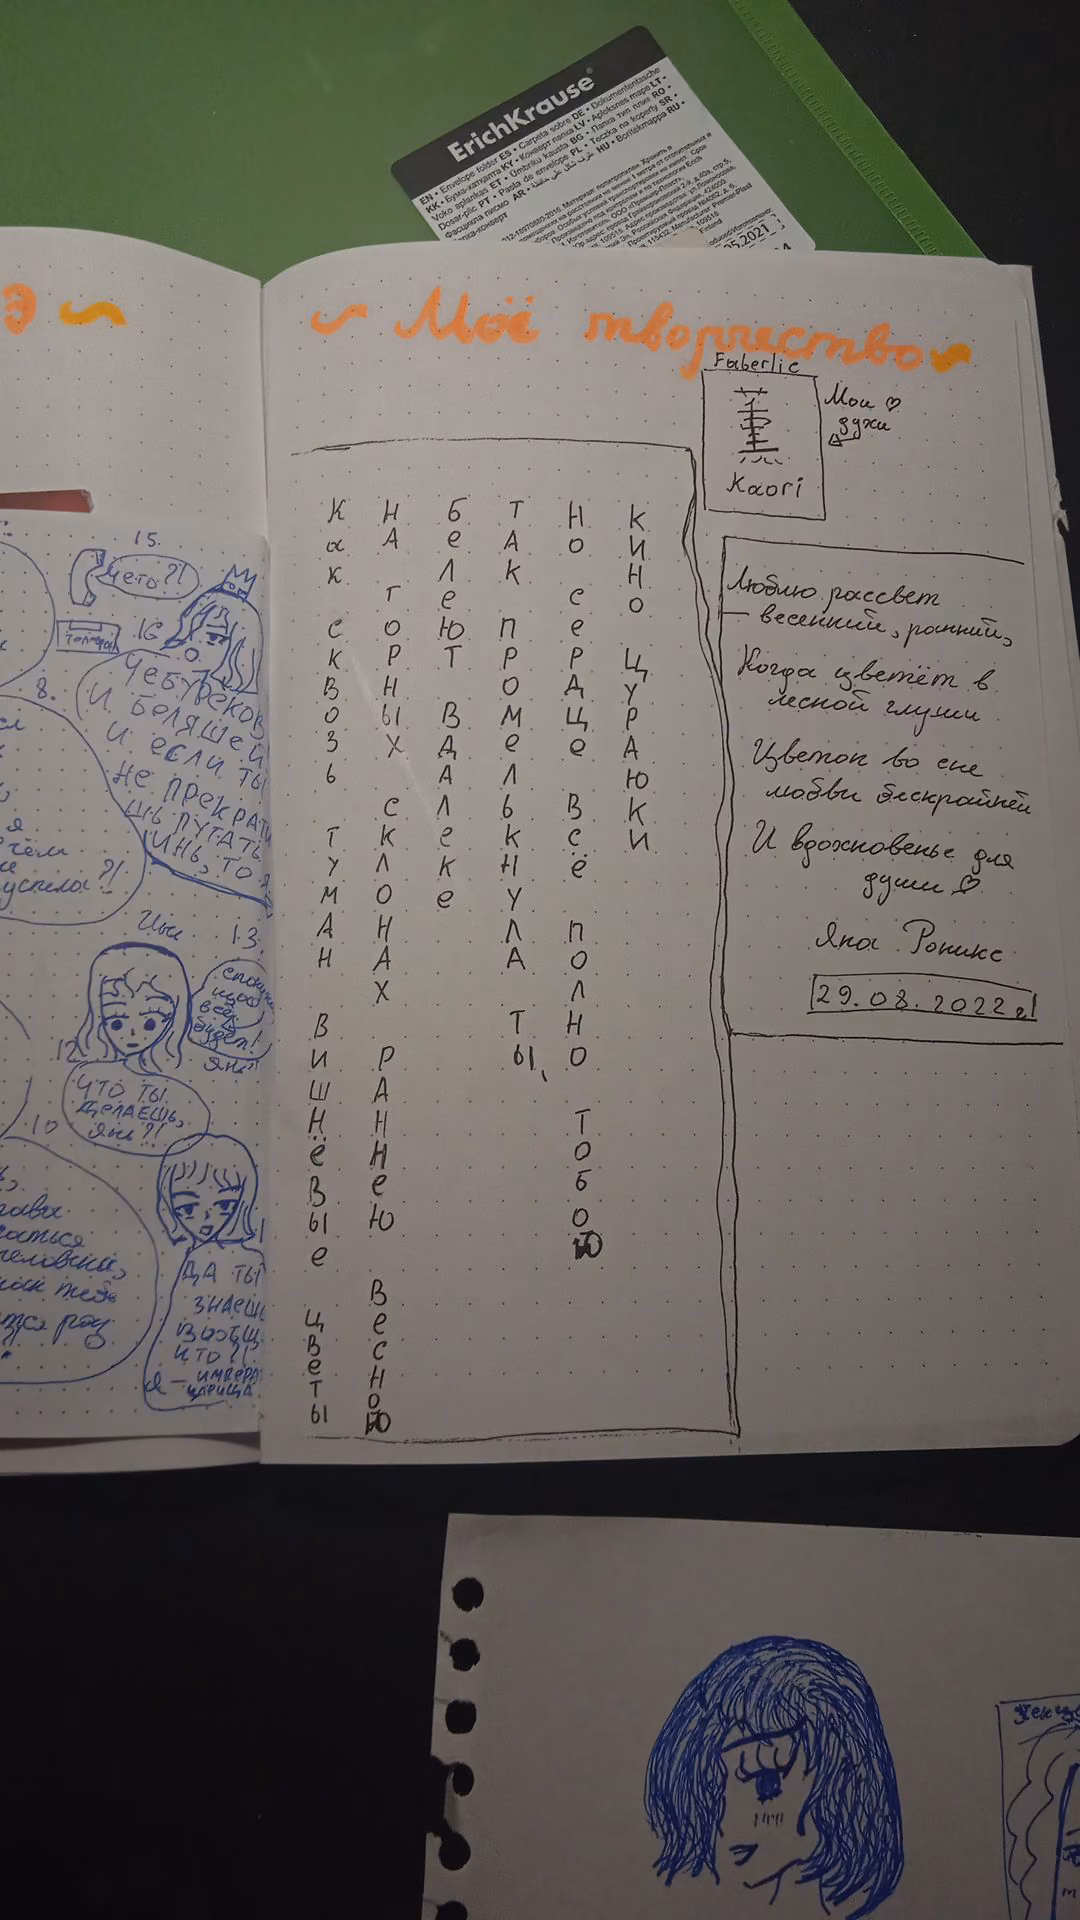 ErichKrause®
EN • Envelope folder ES • Carpeta sobre DE • Dokumententasche
KK • Бума-катқапта KY • Конверт папка LV • Aploksnes mape LT •
Voko aplankas ET • Ümbriku kausta BG • Папка тип плик RO •
Dosar-plic PT • Pasta de envelope PL • Teczka na koperty SR •
Фасцикла писмо AR • HU • Boritékmappa RU •
пка-конверт
05.2021
Э
Моё творчество
Faberlic
Мои ♡
духи
Kaori
Как сквозь туман вишнёвые цветы
На горных склонах раннею весною
Белеют вдалеке
Так промелькнула ты,
Но сердце всё полно тобою
Кино Цураюки
Люблю рассвет
— весенний, ранний,
Когда цветёт в
лесной глуши
Цветок во сне
любви бескрайней
И вдохновенье для
души ♡
Яна Роникс
29.08.2022 г
15.
Чего?!
16
Чебуреков
и беляшей
и если ты
не прекрати
шь пугать
Инь, то я
8.
?!
13.
всё
будет!
12
Что ты
делаешь,
Янь?!
10
Да ты
знаешь
вообщ
кто?!
Я — импера